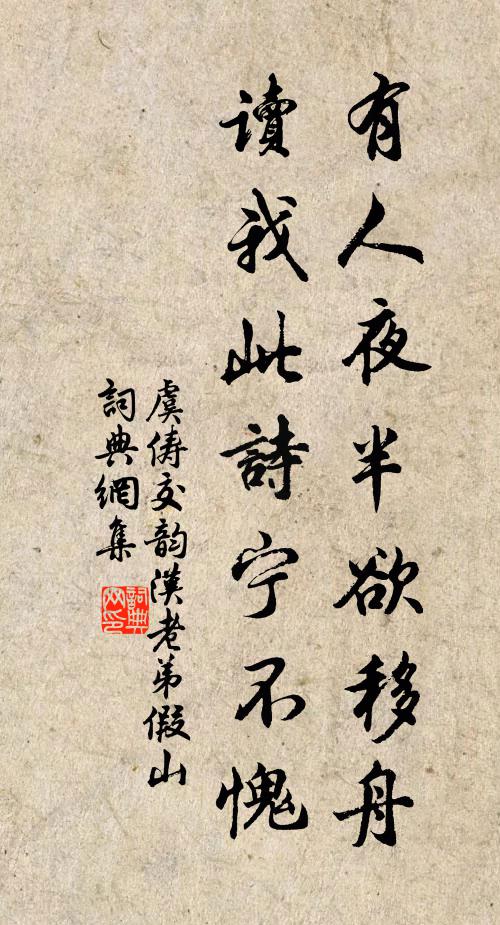 有人夜半欲移舟
讀我此詩宁不愧
虞俦交韵漢老弟假山
詞典網集
詞典网印